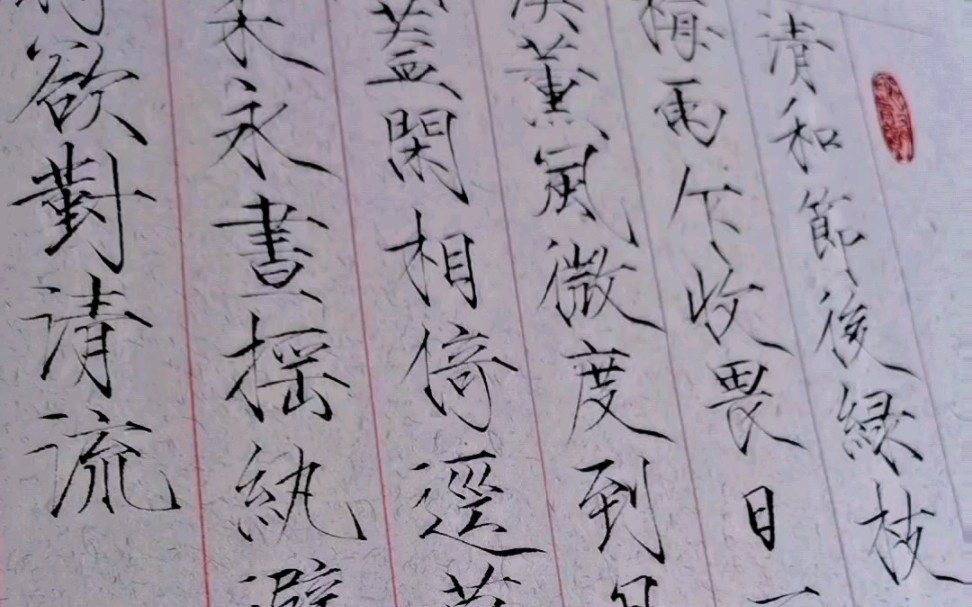 清和節後綠枝
梅雨乍收畏日
薰風微度到
蓋閑相倚逕
永晝摇紈避
欲對清流